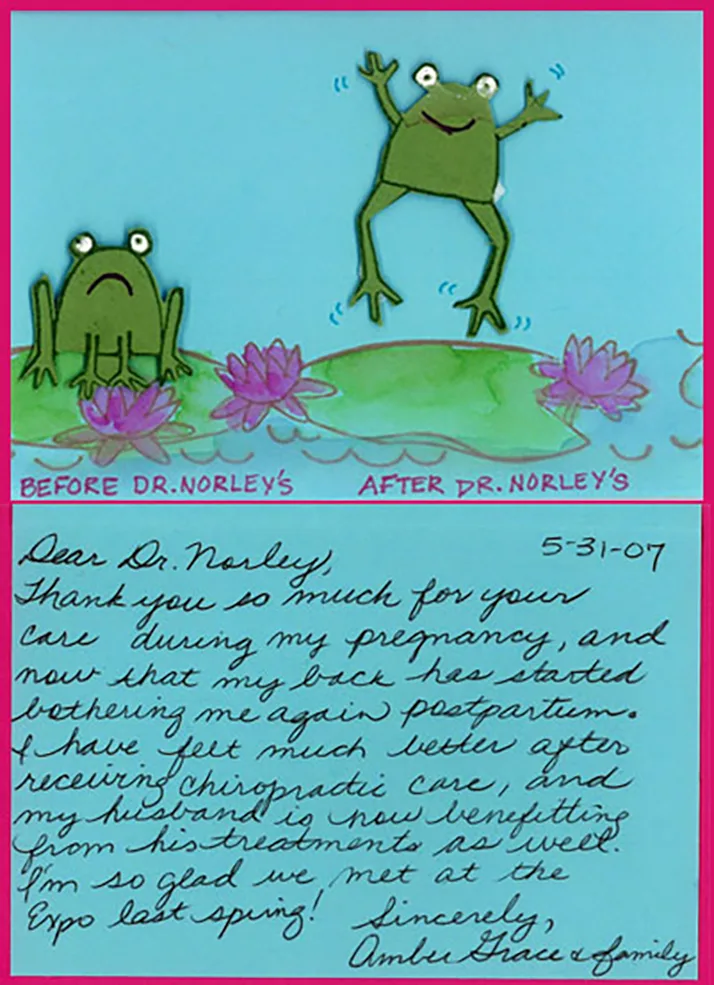 BEFORE DR. NORLEY'S AFTER DR. NORLEY'S
5-31-07
Dear Dr. Norley,
Thank you so much for your
care during my pregnancy, and
now that my back has started
bothering me again postpartum.
I have felt much better after
receiving chiropractic care, and
my husband is now benefitting
from his treatments as well.
I'm so glad we met at the
Expo last spring! Sincerely,
Amber Grace & family